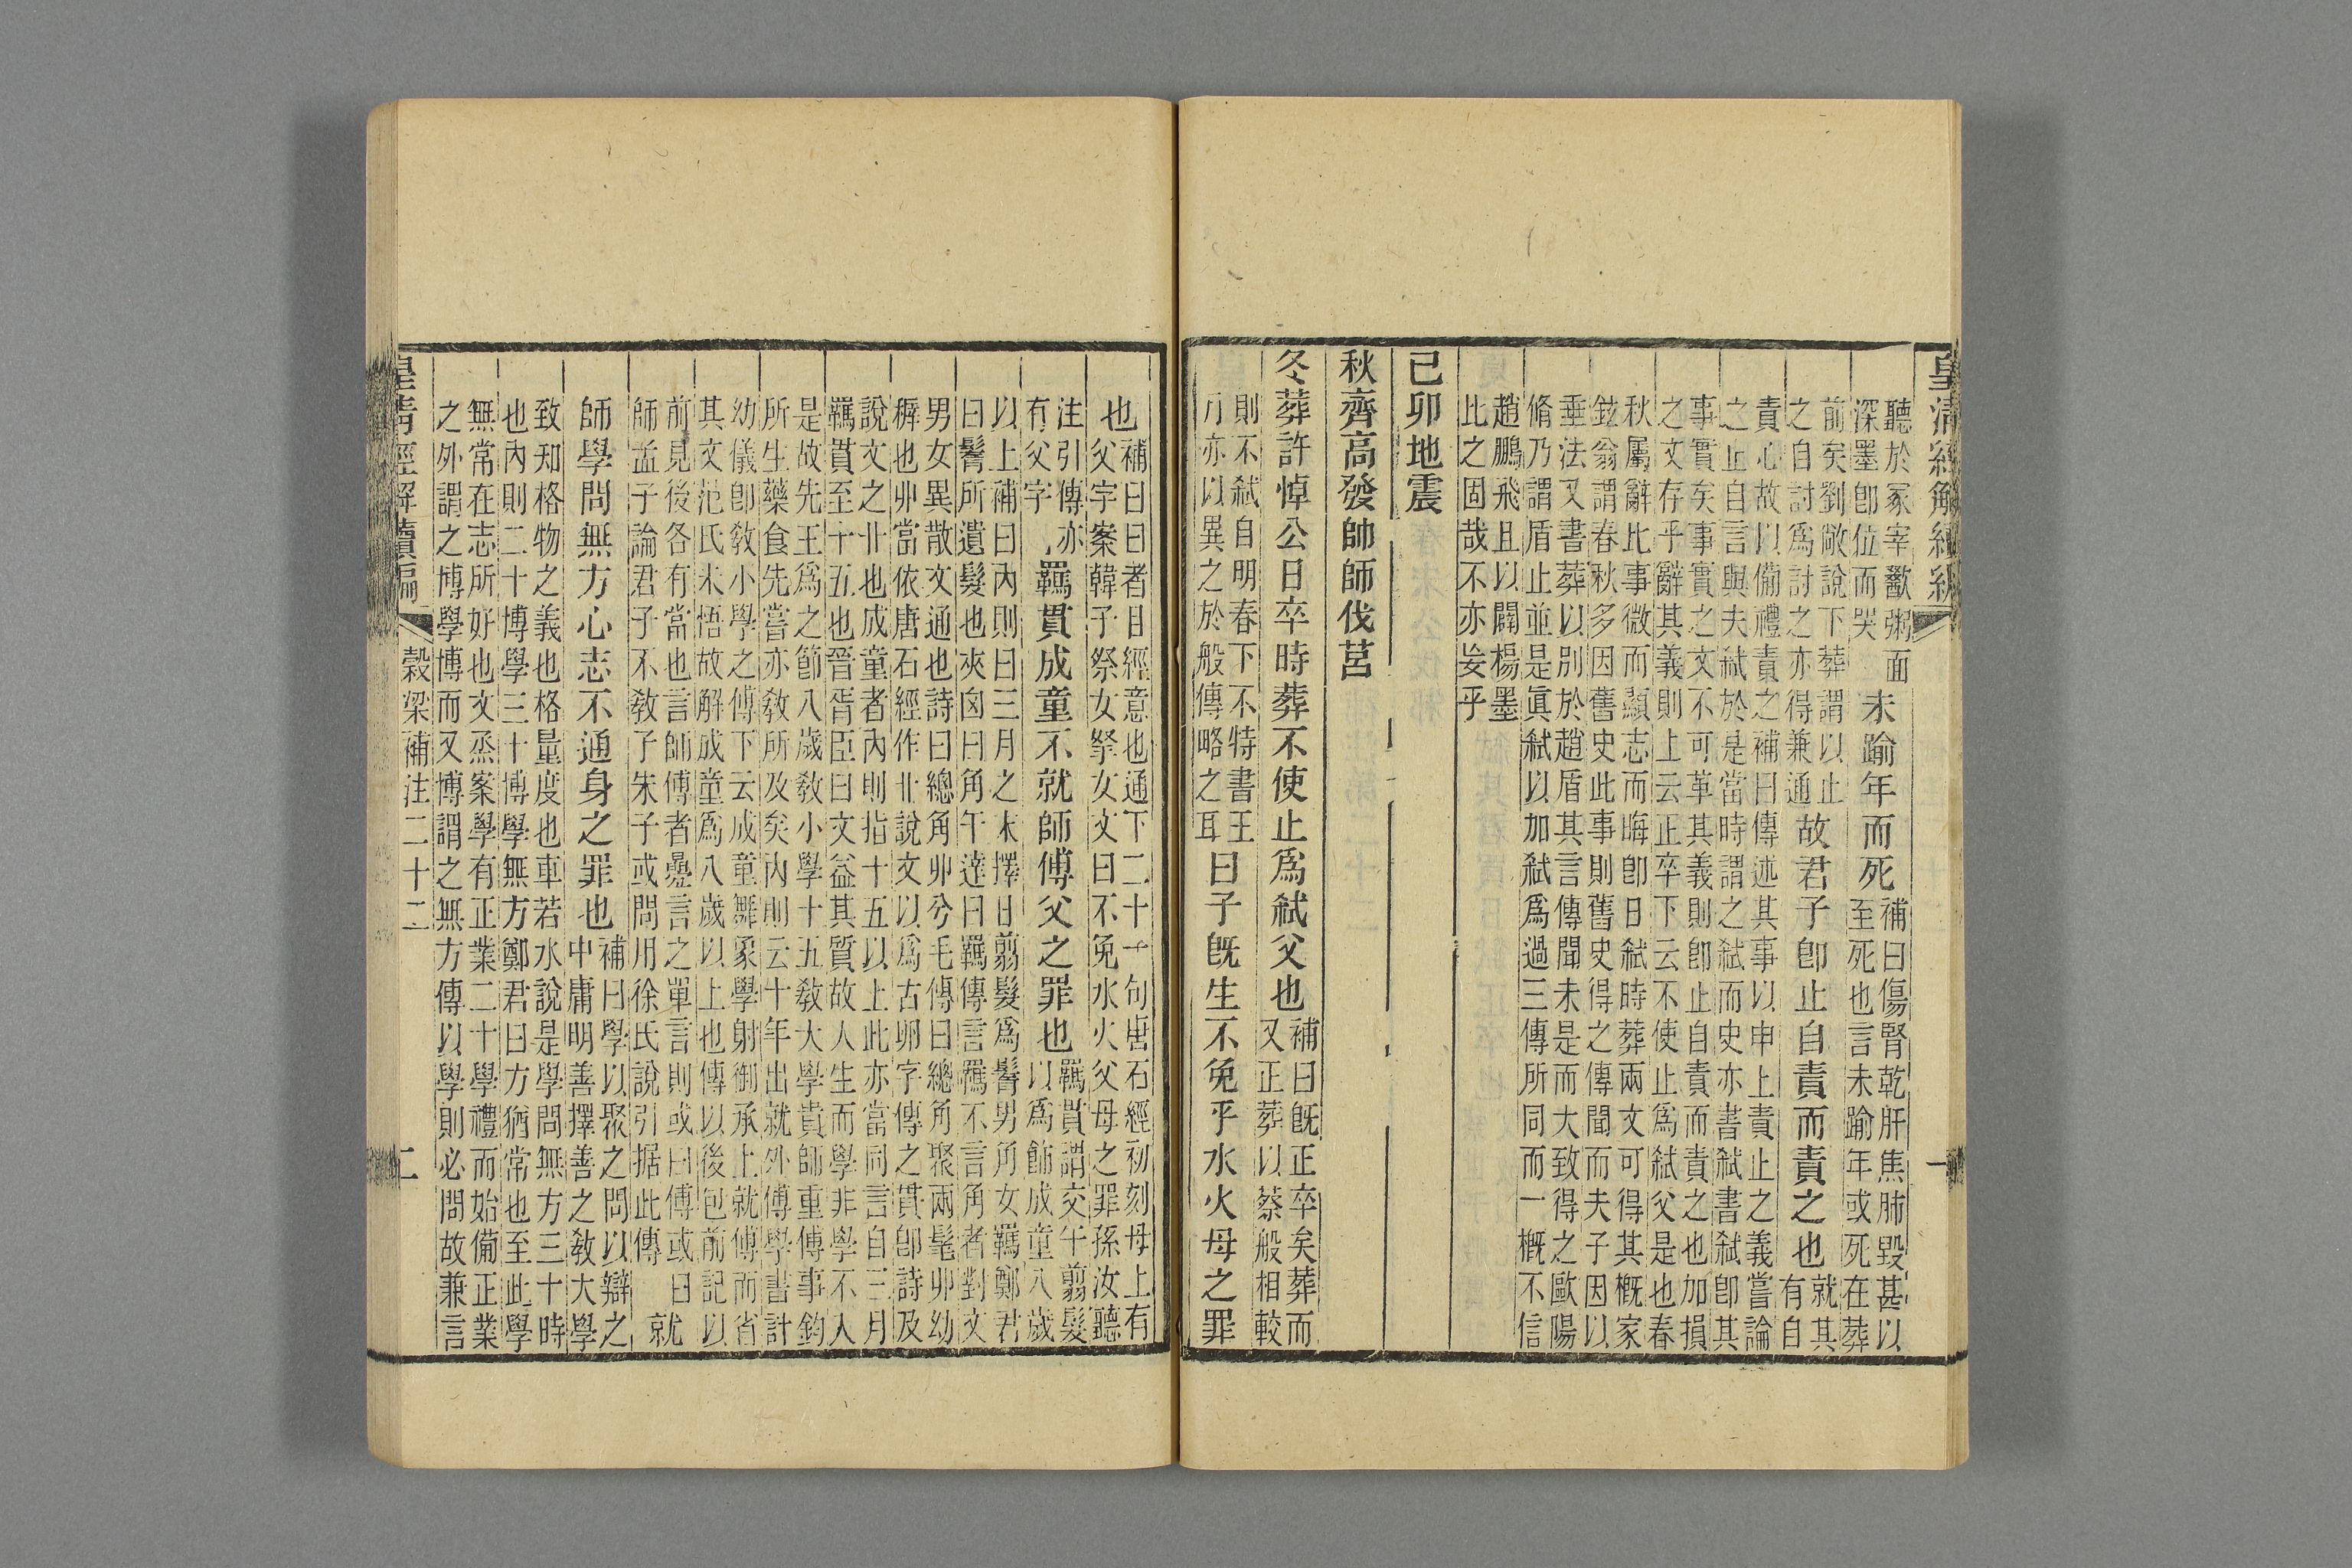 皇清經解續編 一
聽於冢宰歠粥面
深墨卽位而哭
未踰年而死
補曰傷腎乾肝焦肺毀甚以
至死也言未踰年或死在葬
前矣劉敞說下葬謂以止
之自討爲討之亦得兼通
故君子卽止自責而責之也
就其
有自
責心故以備禮責之補曰傳述其事以申上責止之義嘗論
之止自言與夫弒於是當時謂之弒而史亦書弒書弒卽其
事實矣事實之文不可革其義則卽止自責而責之也加損
之文存乎辭其義則上云正卒下云不使止爲弒父是也春
秋屬辭比事微而顯志而晦卽日弒時葬兩文可得其概家
鉉翁謂春秋多因舊史此事則舊史得之傳聞而夫子因以
垂法又書葬以別於趙盾其言傳聞未是而大致得之歐陽
脩乃謂盾止並是眞弒以加弒爲過三傳所同而一概不信
趙鵬飛且以闢楊墨
比之固哉不亦妄乎
已卯地震
秋齊高發帥師伐莒
冬葬許悼公日卒時葬不使止爲弒父也
補曰旣正卒矣葬而
又正葬以蔡般相較
則不弒自明春下不特書王
月亦以異之於般傳略之耳
曰子旣生不免乎水火母之罪
也
補曰曰者目經意也通下二十一句唐石經初刻母上有
父字案韓子祭女挐女文曰不免水火父母之罪孫汝聽
注引傳亦
有父字
羈貫成童不就師傅父之罪也
羈貫謂交午翦髮
以爲飾成童八歲
以上補曰內則曰三月之末擇日翦髮爲鬌男角女羈鄭君
曰鬌所遺髮也夾囟曰角午達曰羈傳言羈不言角者對文
男女異散文通也詩曰總角丱兮毛傳曰總角聚兩髦丱幼
穉也丱當依唐石經作卝說文以爲古卵字傳之貫卽詩及
說文之卝也成童者內則指十五以上此亦當同言自三月
羈貫至十五也晉胥臣曰文益其質故人生而學非學不入
是故先王爲之節八歲敎小學十五敎大學貴師重傅事鈞
所生藥食先嘗亦敎所及矣內則云十年出就外傅學書計
幼儀卽敎小學之傅下云成童舞象學射御承上就傅而省
其文范氏未悟故解成童爲八歲以上也傳以後包前記以
前見後各有當也言師傅者疊言之單言則或曰傅或曰
師孟子論君子不敎子朱子或問用徐氏說引据此傳
就
師學問無方心志不通身之罪也
補曰學以聚之問以辯之
中庸明善擇善之敎大學
致知格物之義也格量度也車若水說是學問無方三十時
也內則二十博學三十博學無方鄭君曰方猶常也至此學
無常在志所好也文烝案學有正業二十學禮而始備正業
之外謂之博學博而又博謂之無方傳以學則必問故兼言
皇清經解續編 穀梁補注二十二 二